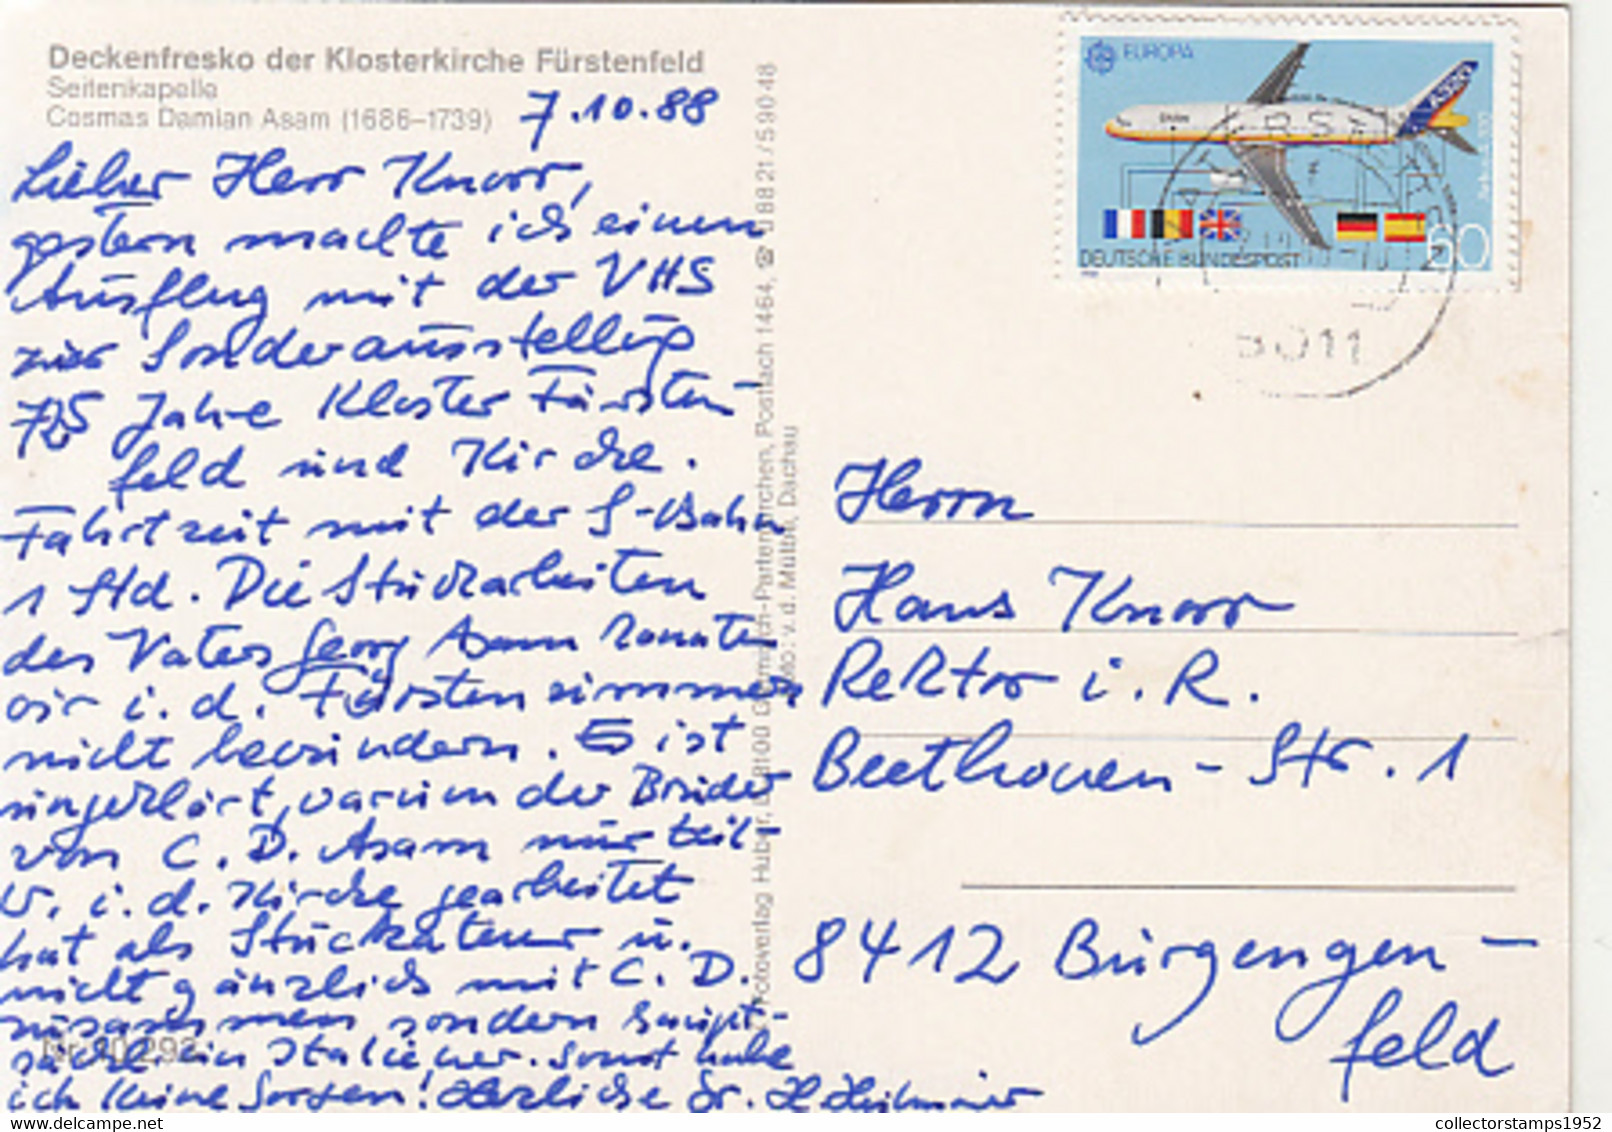 Deckenfresko der Klosterkirche Fürstenfeld
Seitenkapelle
Cosmas Damian Asam (1686–1739)
7.10.88
Lieber Herr Knorr,
gestern machte ich einen
Ausflug mit der VHS
zur Sonderausstellung
725 Jahre Kloster Fürsten-
feld und Kirche.
Fahrtzeit mit der S-Bahn
1 Std. Die Stuckarbeiten
des Vaters Georg Asam konnten
wir i. d. Fürstenzimmern
nicht bewundern. Es ist
ungeklärt, warum der Bruder
von C. D. Asam nur teil-
w. i. d. Kirche gearbeitet
hat als Stuckateur u.
nicht gänzlich mit C. D.
zusammen sondern haupt-
sächl. ein Italiener. Sonst habe
ich keine Sorgen! Herzliche Gr. H.
Nr. 10 292
Fotoverlag Huber, D-8100 Garmisch-Partenkirchen, Postfach 1464, ☎ 0 88 21 / 5 90 48
Foto: v. d. Mülbe, Dachau
EUROPA
A320
DEUTSCHE BUNDESPOST
60
8011
Herrn
Hans Knorr
Rektor i. R.
Beethoven-Str. 1
8412 Burgengen-
feld
collectorstamps1952